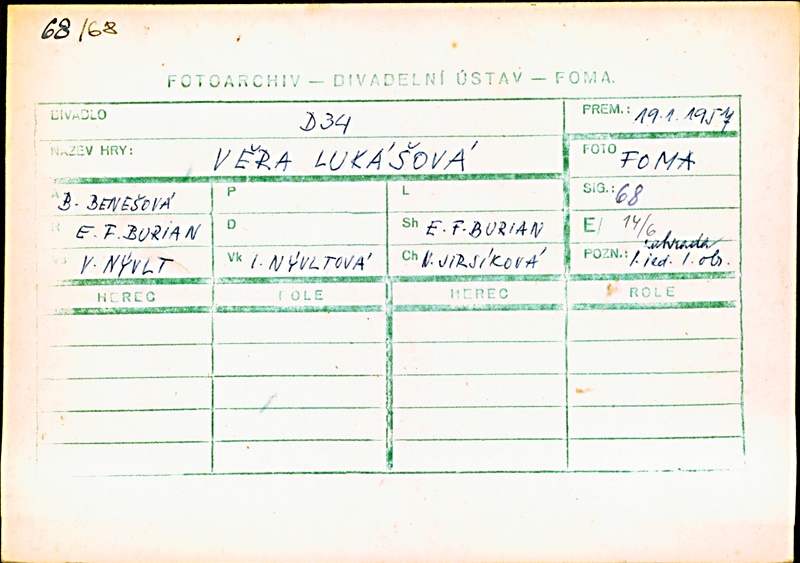 68/68
FOTOARCHIV — DIVADELNÍ ÚSTAV — FOMA.
DIVADLO D34 PREM.: 19.1.1957
NÁZEV HRY: VĚRA LUKÁŠOVÁ FOTO FOMA
A B. BENEŠOVÁ P L SIG.: 68
R E. F. BURIAN D Sh E. F. BURIAN E/ 14/6
Vs V. NÝVLT Vk I. NÝVLTOVÁ Ch N. JIRSÍKOVÁ POZN.: zahrada
1. jed. 1. obr.
HEREC ROLE HEREC ROLE